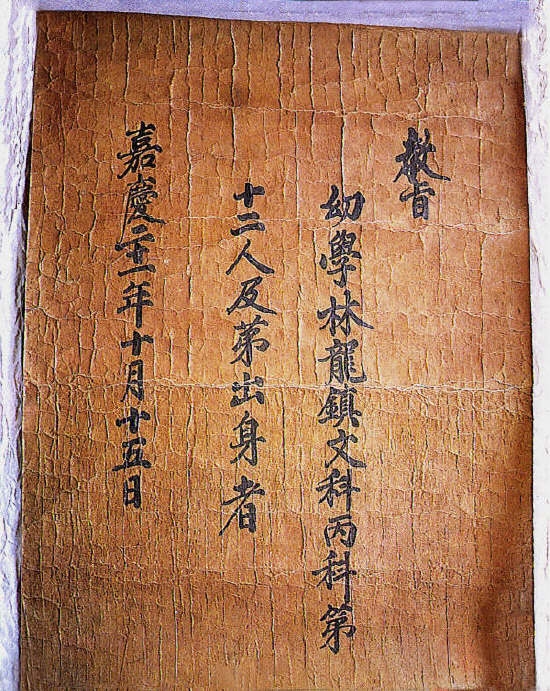 敎旨
幼學林龍鎮文科丙科第
十二人及苐出身者
嘉慶二十一年十月十五日